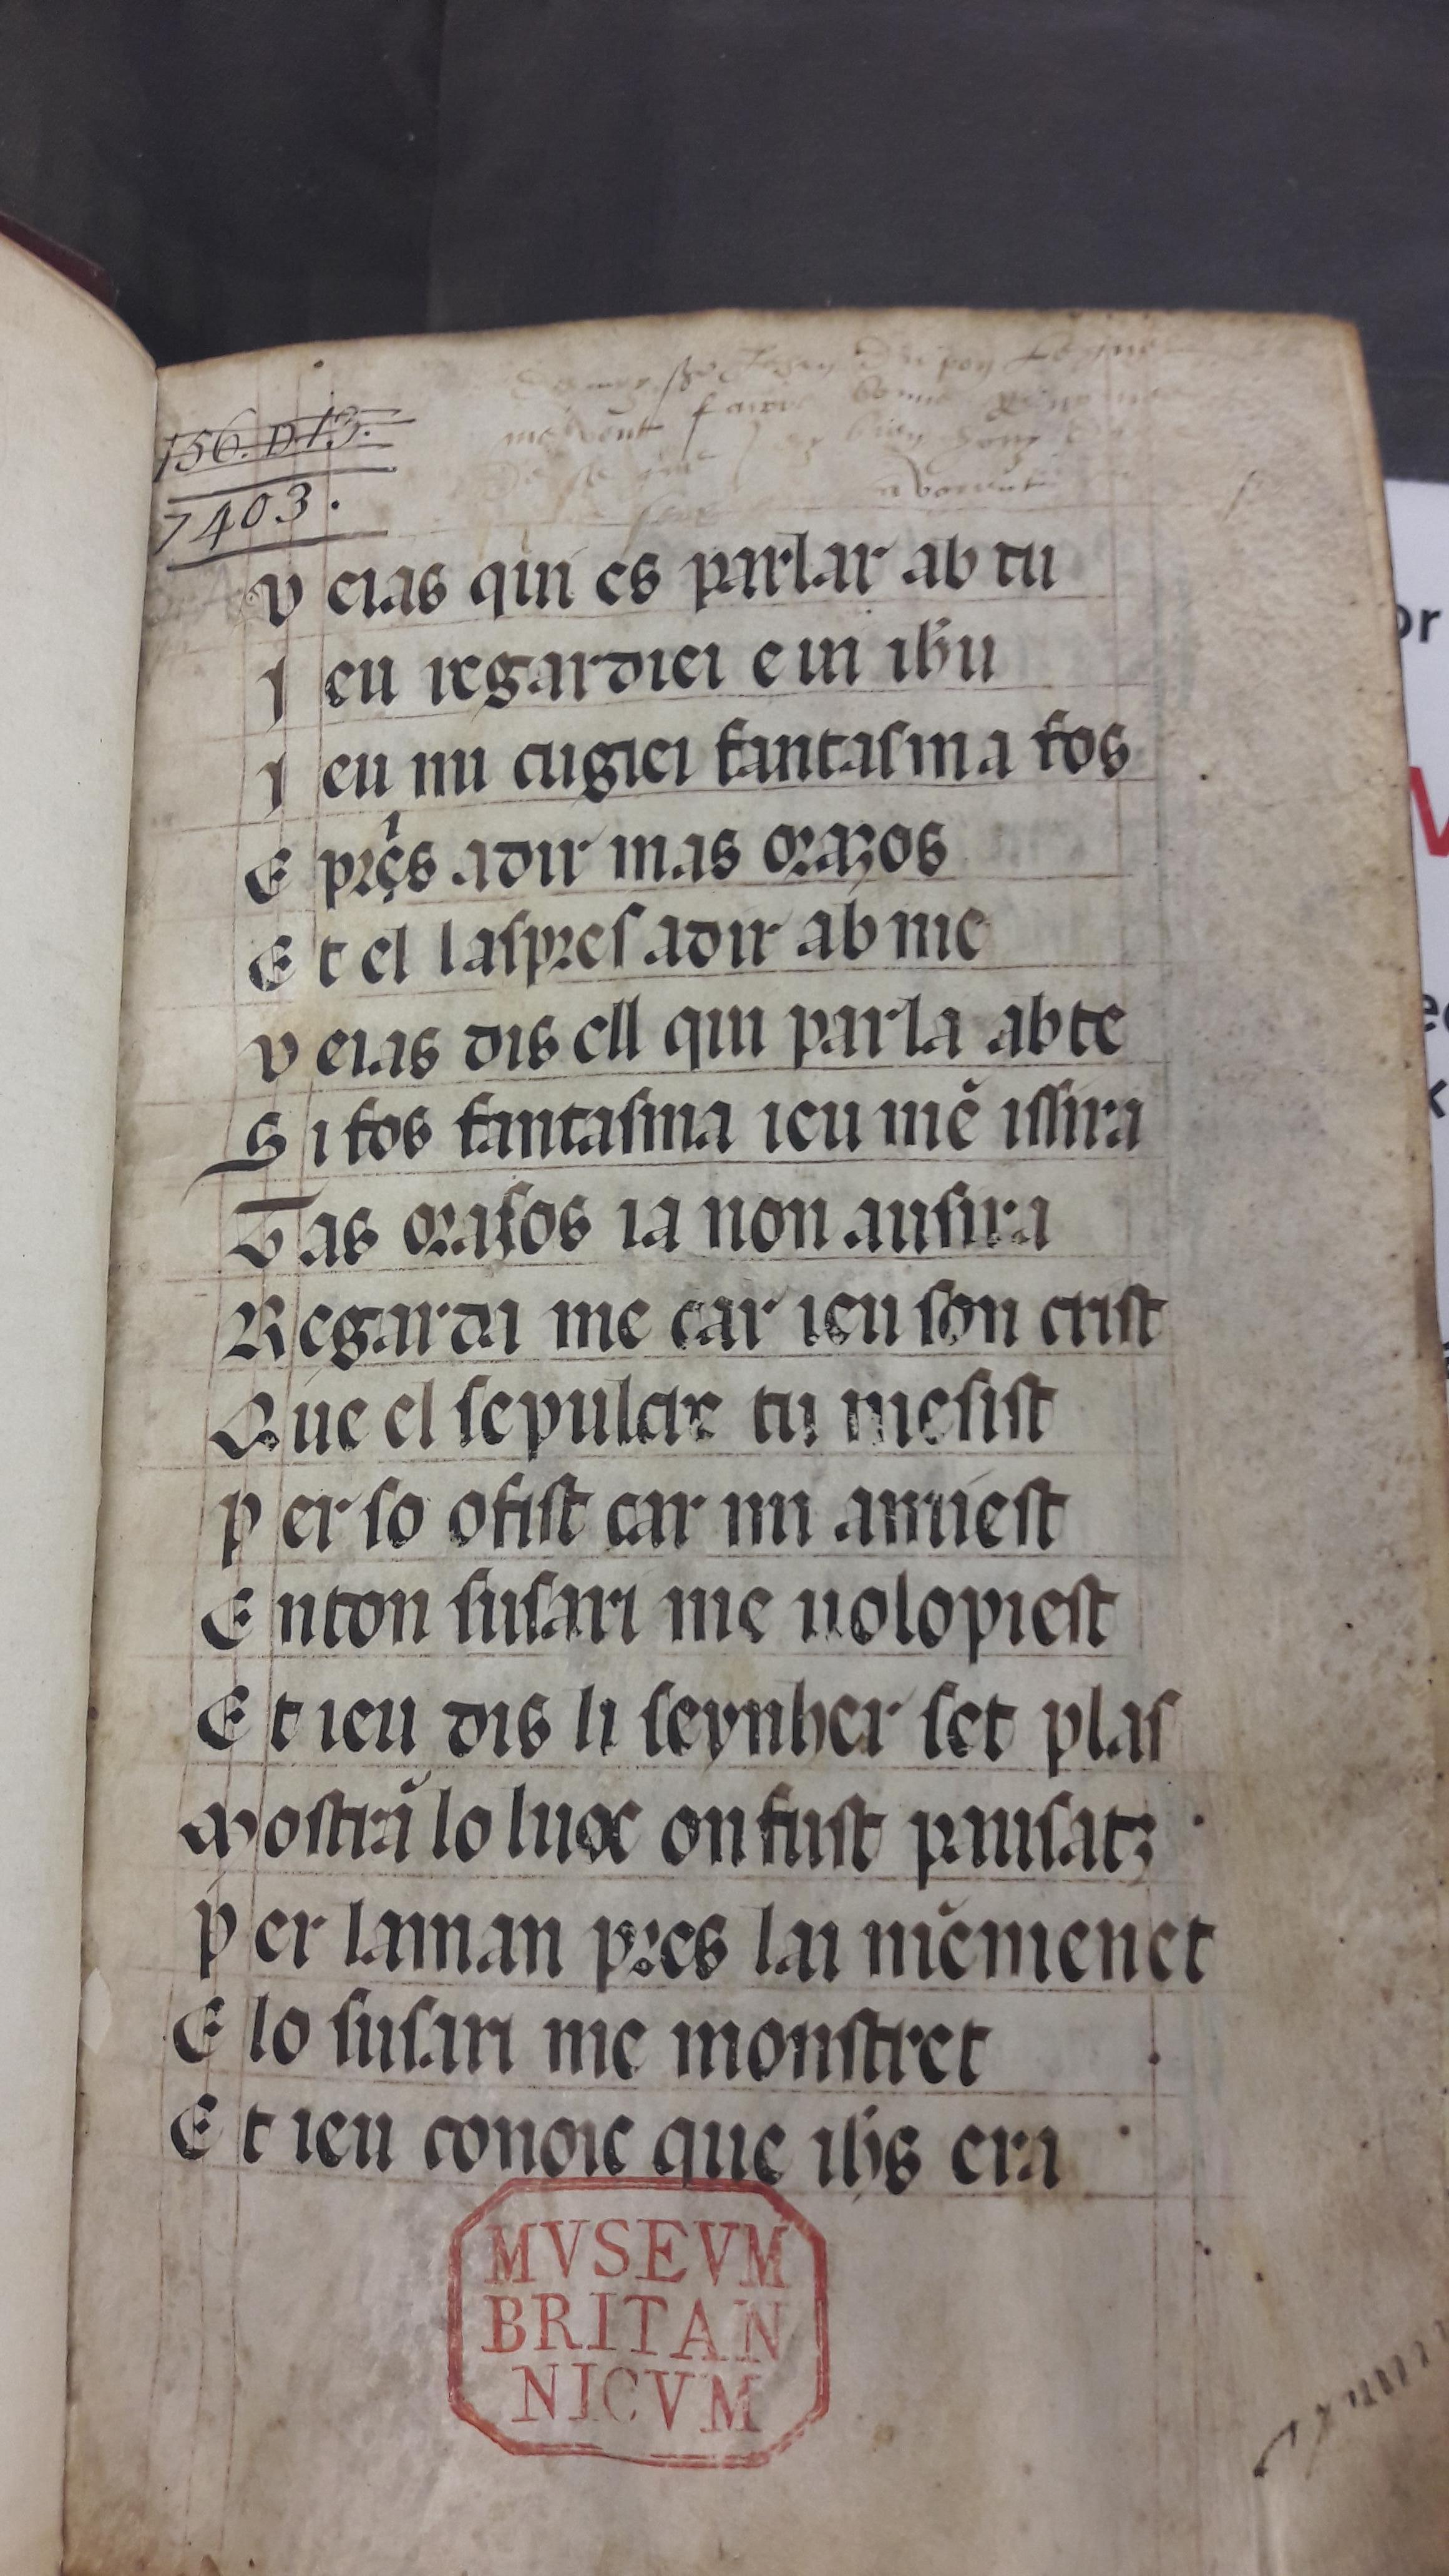 156. D 13.
7403.
faire
v eias qui es parlar ab tu
I eu regardiei e ui ihũ
I eu mi cugiei fantasma fos
E pres a dir mas orazos
E t el las pres a dir ab me
v eias dis ell qui parla ab te
S i fos fantasma ieu mẽ issira
T as orasos ia non ausira
R egarda me car ieu son crist
Q ue el sepulcre tu mesist
p er so o fist car mi amiest
E nton susari me uolopiest
E t ieu dis li seynher set plas
M ostrã lo luoc on fust pausatz
p er la man pres lai mẽ menet
E lo susari me monstret
E t ieu conoic que ihs era
MVSEVM
BRITAN
NICVM